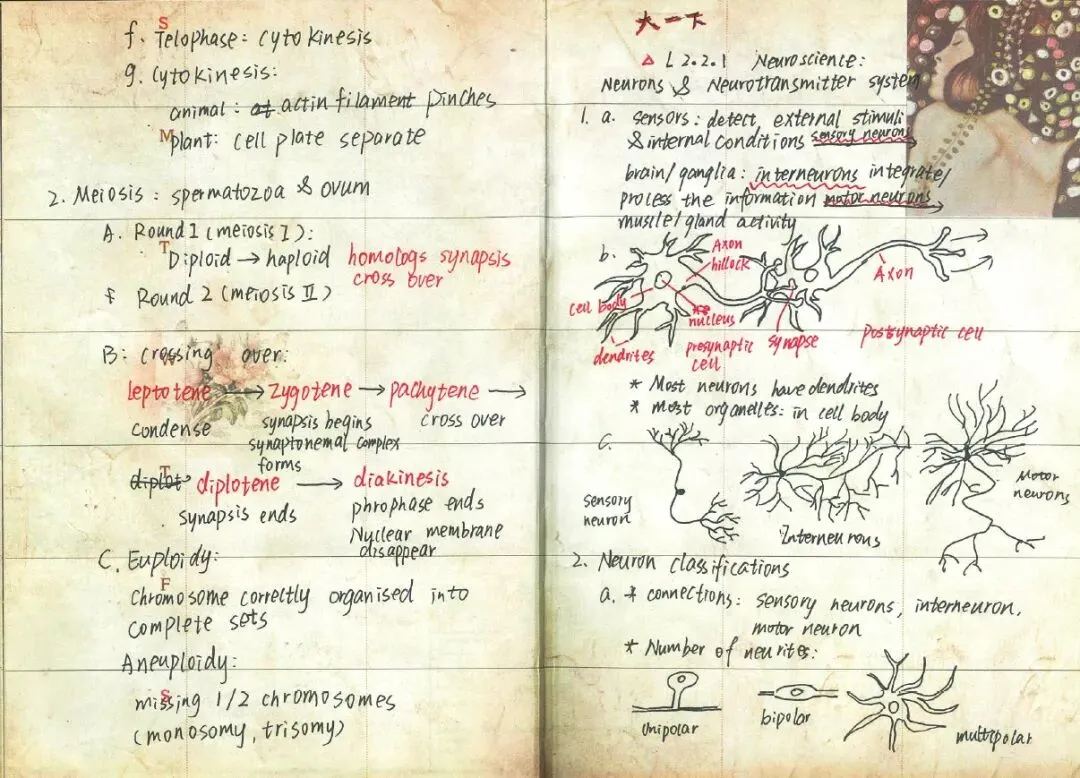 S
f. Telophase: cytokinesis
g. Cytokinesis:
animal: at actin filament pinches
M
plant: cell plate separate
2. Meiosis: spermatozoa & ovum
A. Round 1 (meiosis I):
T
Diploid → haploid homologs synapsis
cross over
Round 2 (meiosis II)
B: crossing over:
leptotene → zygotene → pachytene →
condense synapsis begins cross over
synaptonemal complex
forms
T
diplot diplotene → diakinesis
synapsis ends phrophase ends
Nuclear membrane
disappear
C. Euploidy:
F
Chromosome correctly organised into
complete sets
Aneuploidy:
S
missing 1/2 chromosomes
(monosomy, trisomy)
大一下
△ L 2.2.1 Neuroscience:
Neurons & Neurotransmitter system
1. a. sensors: detect, external stimuli
& internal conditions sensory neurons
brain/ganglia: interneurons integrate/
process the information motor neurons
muscle/gland activity
b.
Axon
hillock
Axon
cell body
nucleus
dendrites
presynaptic
cell
synapse
postsynaptic cell
* Most neurons have dendrites
* most organelles: in cell body
c.
sensory
neuron
Interneurons
Motor
neurons
2. Neuron classifications
a. * connections: sensory neurons, interneuron,
motor neuron
* Number of neurites:
unipolar
bipolar
multipolar